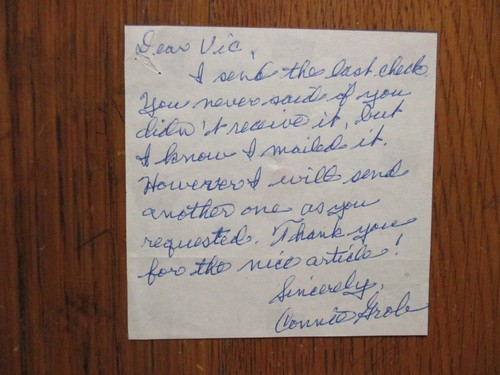 Dear Vic,
I send the last check.
You never said if you
didn't receive it, but
I know I mailed it.
However I will send
another one as you
requested. Thank you
for the nice article!
Sincerely,
Connie Grob